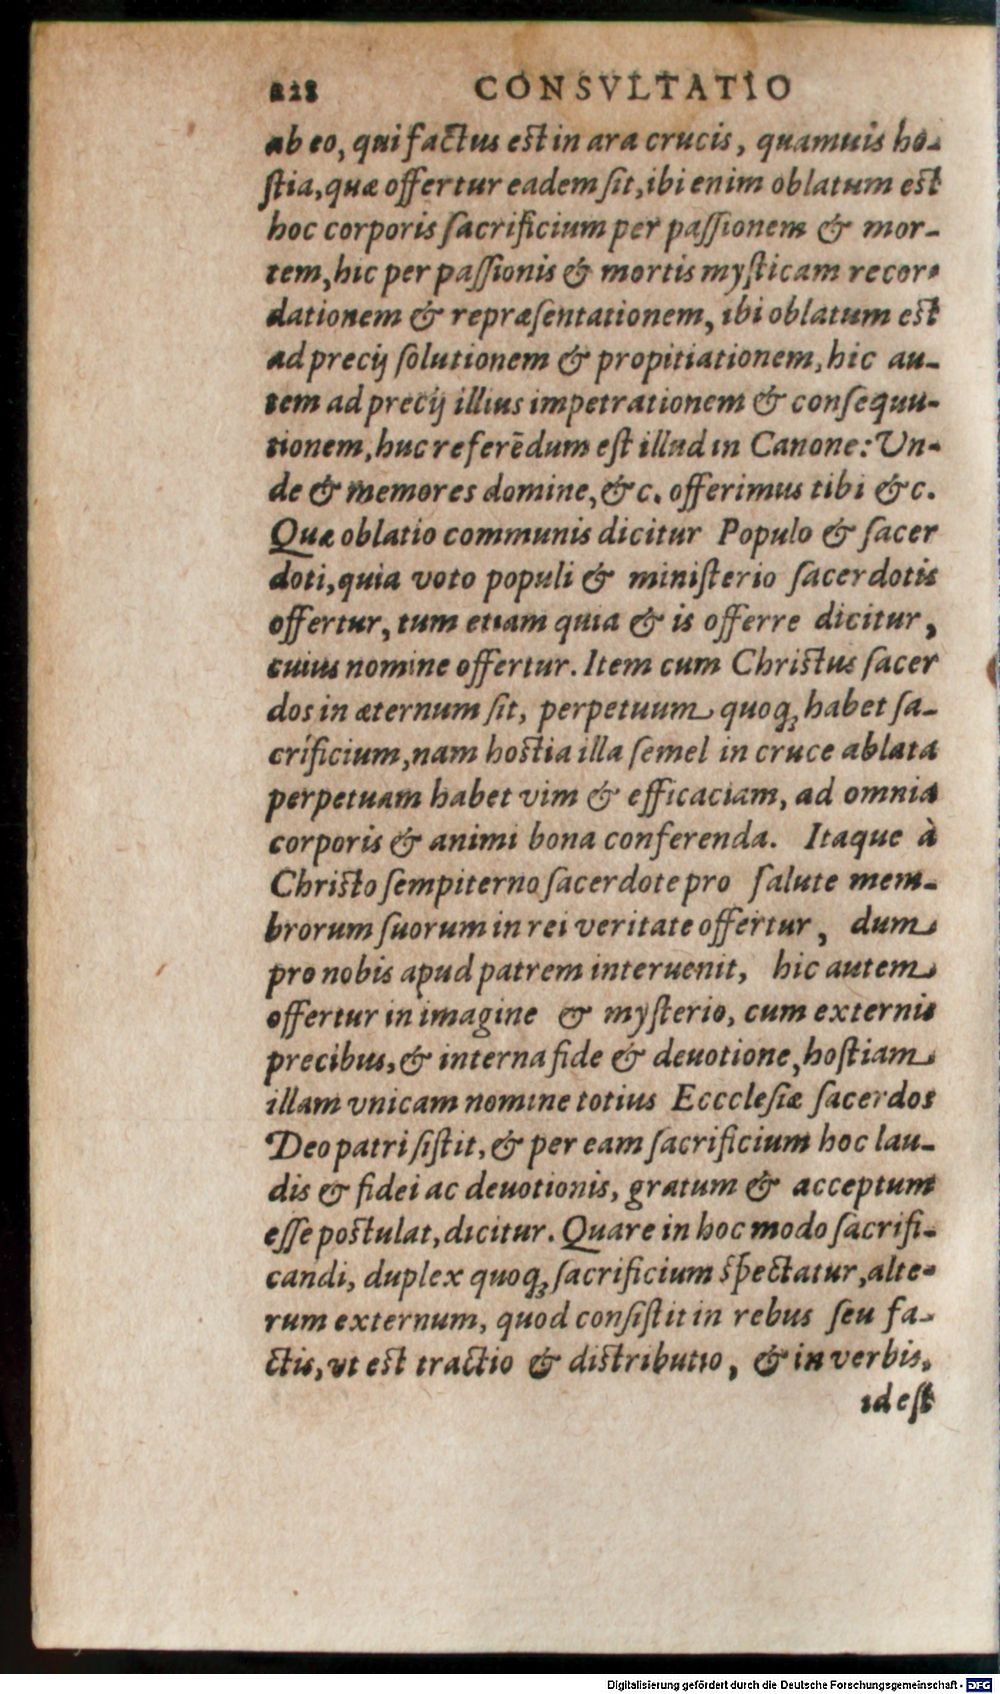 218 CONSVLTATIO
ab eo, qui factus est in ara crucis, quamuis ho-
ſtia, quæ offertur eadem ſit, ibi enim oblatum est
hoc corporis ſacrificium per paſſionem & mor-
tem, hic per paſſionis & mortis myſticam recor-
dationem & repræſentationem, ibi oblatum est
ad precij ſolutionem & propitiationem, hic au-
tem ad precij illius impetrationem & conſequu-
tionem, huc referēdum eſt illud in Canone: Vn-
de & memores domine, &c. offerimus tibi &c.
Quæ oblatio communis dicitur Populo & ſacer
doti, quia voto populi & miniſterio ſacerdotis
offertur, tum etiam quia & is offerre dicitur,
cuius nomine offertur. Item cum Christus ſacer
dos in æternum ſit, perpetuum quoq; habet ſa-
crificium, nam hostia illa ſemel in cruce ablata
perpetuam habet vim & efficaciam, ad omnia
corporis & animi bona conferenda. Itaque à
Christo ſempiterno ſacerdote pro ſalute mem-
brorum ſuorum in rei veritate offertur, dum
pro nobis apud patrem interuenit, hic autem
offertur in imagine & myſterio, cum externis
precibus, & interna fide & deuotione, hoſtiam
illam vnicam nomine totius Eccclesiæ ſacerdos
Deo patri ſiſtit, & per eam ſacrificium hoc lau-
dis & fidei ac deuotionis, gratum & acceptum
eſſe postulat, dicitur. Quare in hoc modo ſacrifi-
candi, duplex quoq; ſacrificium ſpectatur, alte-
rum externum, quod conſiſtit in rebus ſeu fa-
ctis, vt est tractio & distributio, & in verbis,
id eſt
Digitalisierung gefördert durch die Deutsche Forschungsgemeinschaft - DFG